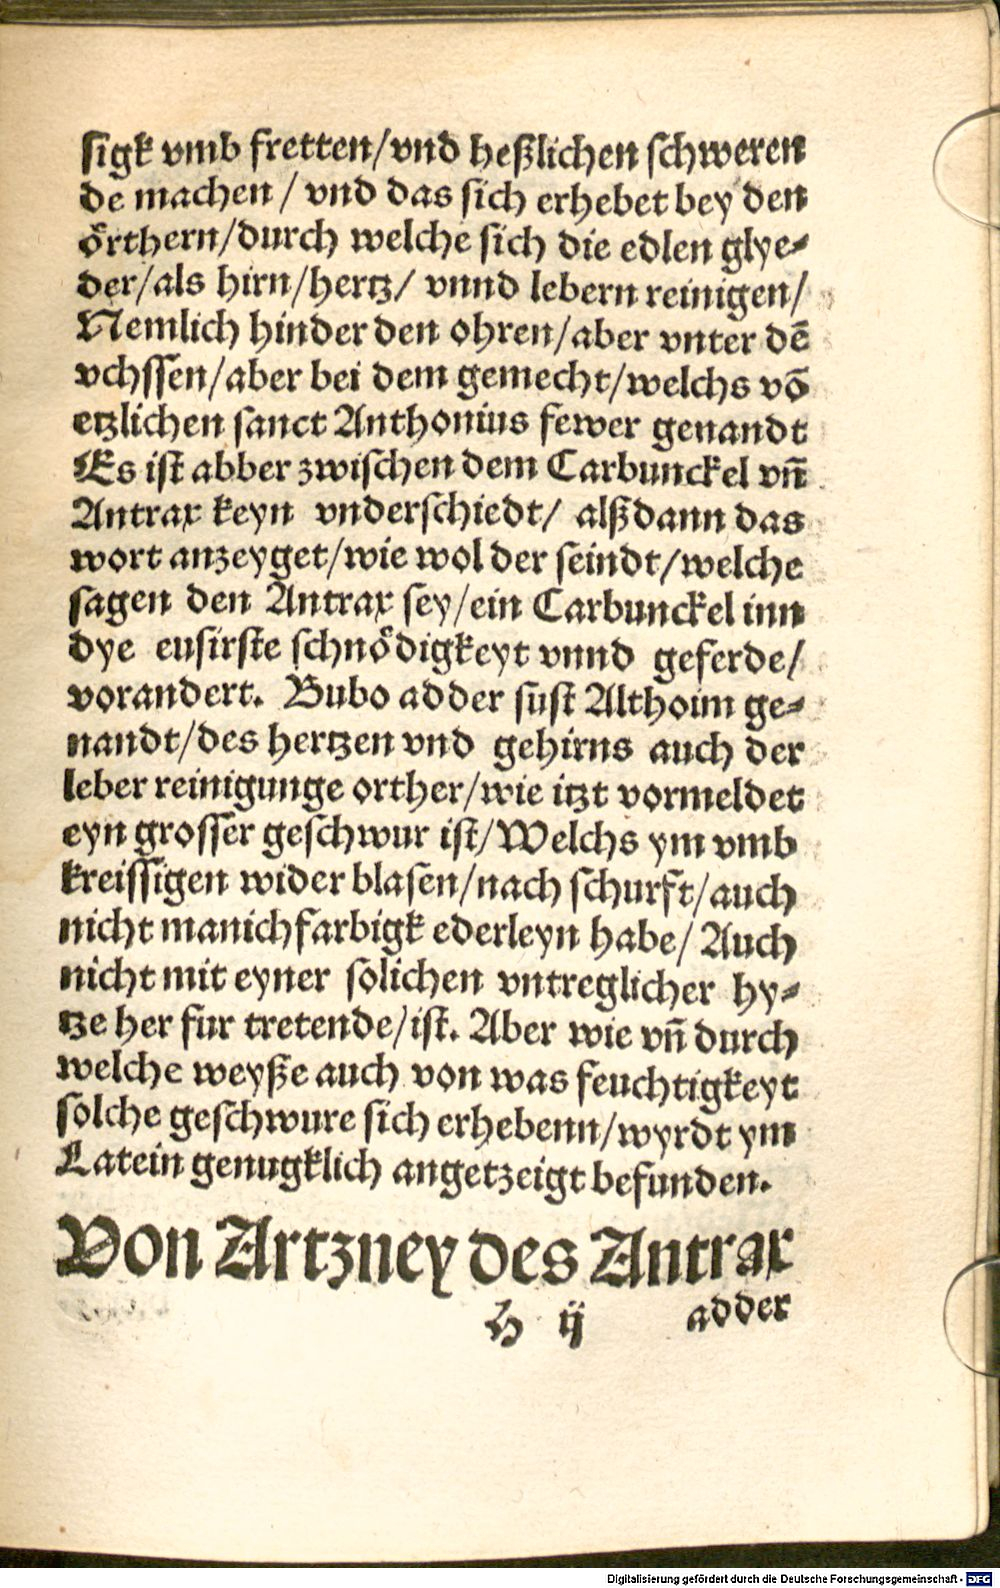 sigk vmb fretten/vnd heßlichen schweren
de machen / vnd das sich erhebet bey den
oͤrthern/durch welche sich die edlen glye-
der/als hirn/hertz/ vnnd lebern reinigen/
Nemlich hinder den ohren/aber vnter dē
vchssen/aber bei dem gemecht/welchs vō
etzlichen sanct Anthonius fewer genandt
Es ist abber zwischen dem Carbunckel vn̄
Antrax keyn vnderschiedt/ alßdann das
wort anzeyget/wie wol der seindt/welche
sagen den Antrax sey/ein Carbunckel inn
dye eusirste schnoͤdigkeyt vnnd geferde/
vorandert. Bubo adder sust Althoim ge-
nandt/des hertzen vnd gehirns auch der
leber reinigunge orther/wie itzt vormeldet
eyn grosser geschwur ist/Welchs ym vmb
kreissigen wider blasen/nach schurft/auch
nicht manichfarbigk ederleyn habe/ Auch
nicht mit eyner solichen vntreglicher hy-
tze her fur tretende/ist. Aber wie vn̄ durch
welche weyße auch von was feuchtigkeyt
solche geschwure sich erhebenn/wyrdt ym
Latein genugklich angetzeigt befunden.
Von Artzney des Antrax
H ij adder
Digitalisierung gefördert durch die Deutsche Forschungsgemeinschaft - DFG